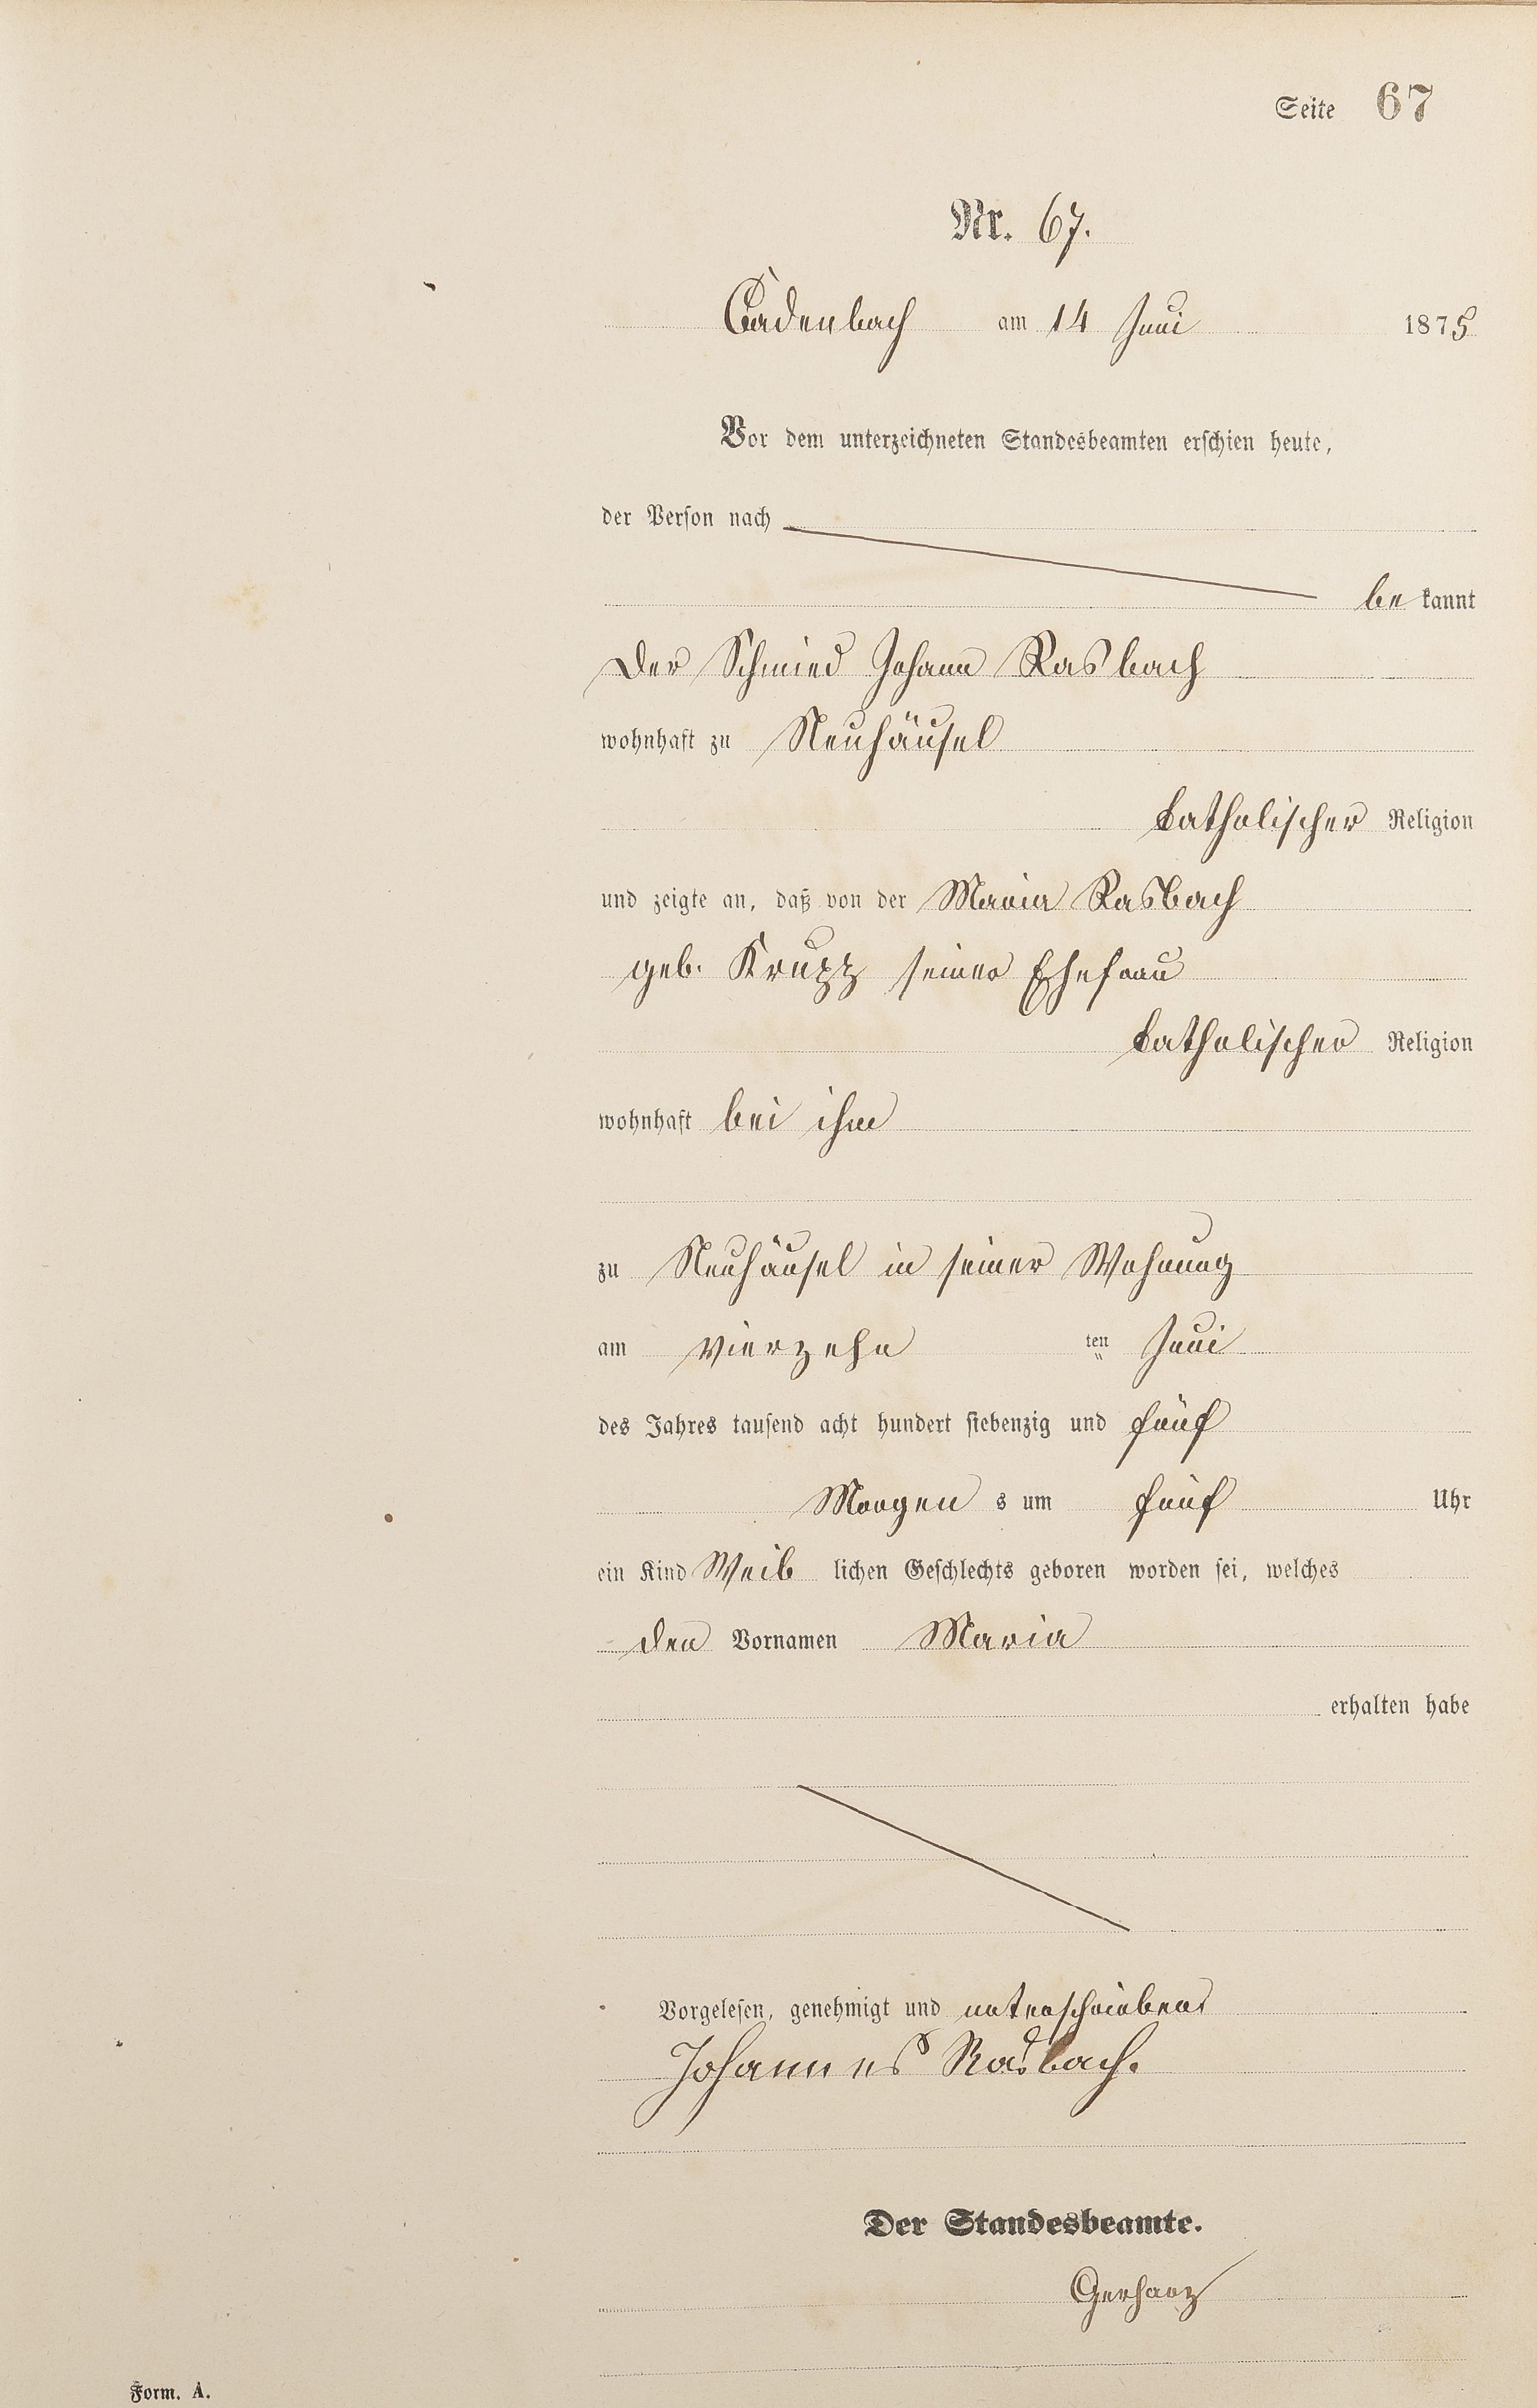 Seite 67
Nr. 67.
Cadenbach am 14 Juni 1875
Vor dem unterzeichneten Standesbeamten erschien heute,
der Person nach
bekannt
der Schmied Johann Rasbach
wohnhaft zu Neuhäusel
katholischer Religion
und zeigte an, daß von der Maria Rasbach
geb. Krupp seiner Ehefrau
katholischer Religion
wohnhaft bei ihm
zu Neuhäusel in seiner Wohnung
am vierzehn ten Juni
des Jahres tausend acht hundert siebenzig und fünf
Morgens um fünf Uhr
ein Kind Weiblichen Geschlechts geboren worden sei, welches
den Vornamen Maria
erhalten habe
Vorgelesen, genehmigt und unterschrieben
Johannes Rasbach.
Der Standesbeamte.
Gerharz
Form. A.